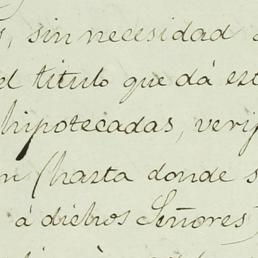 , sin necesidad
el titulo que dá est
hipotecadas, veri
n (hasta donde s
á dichos Señores)